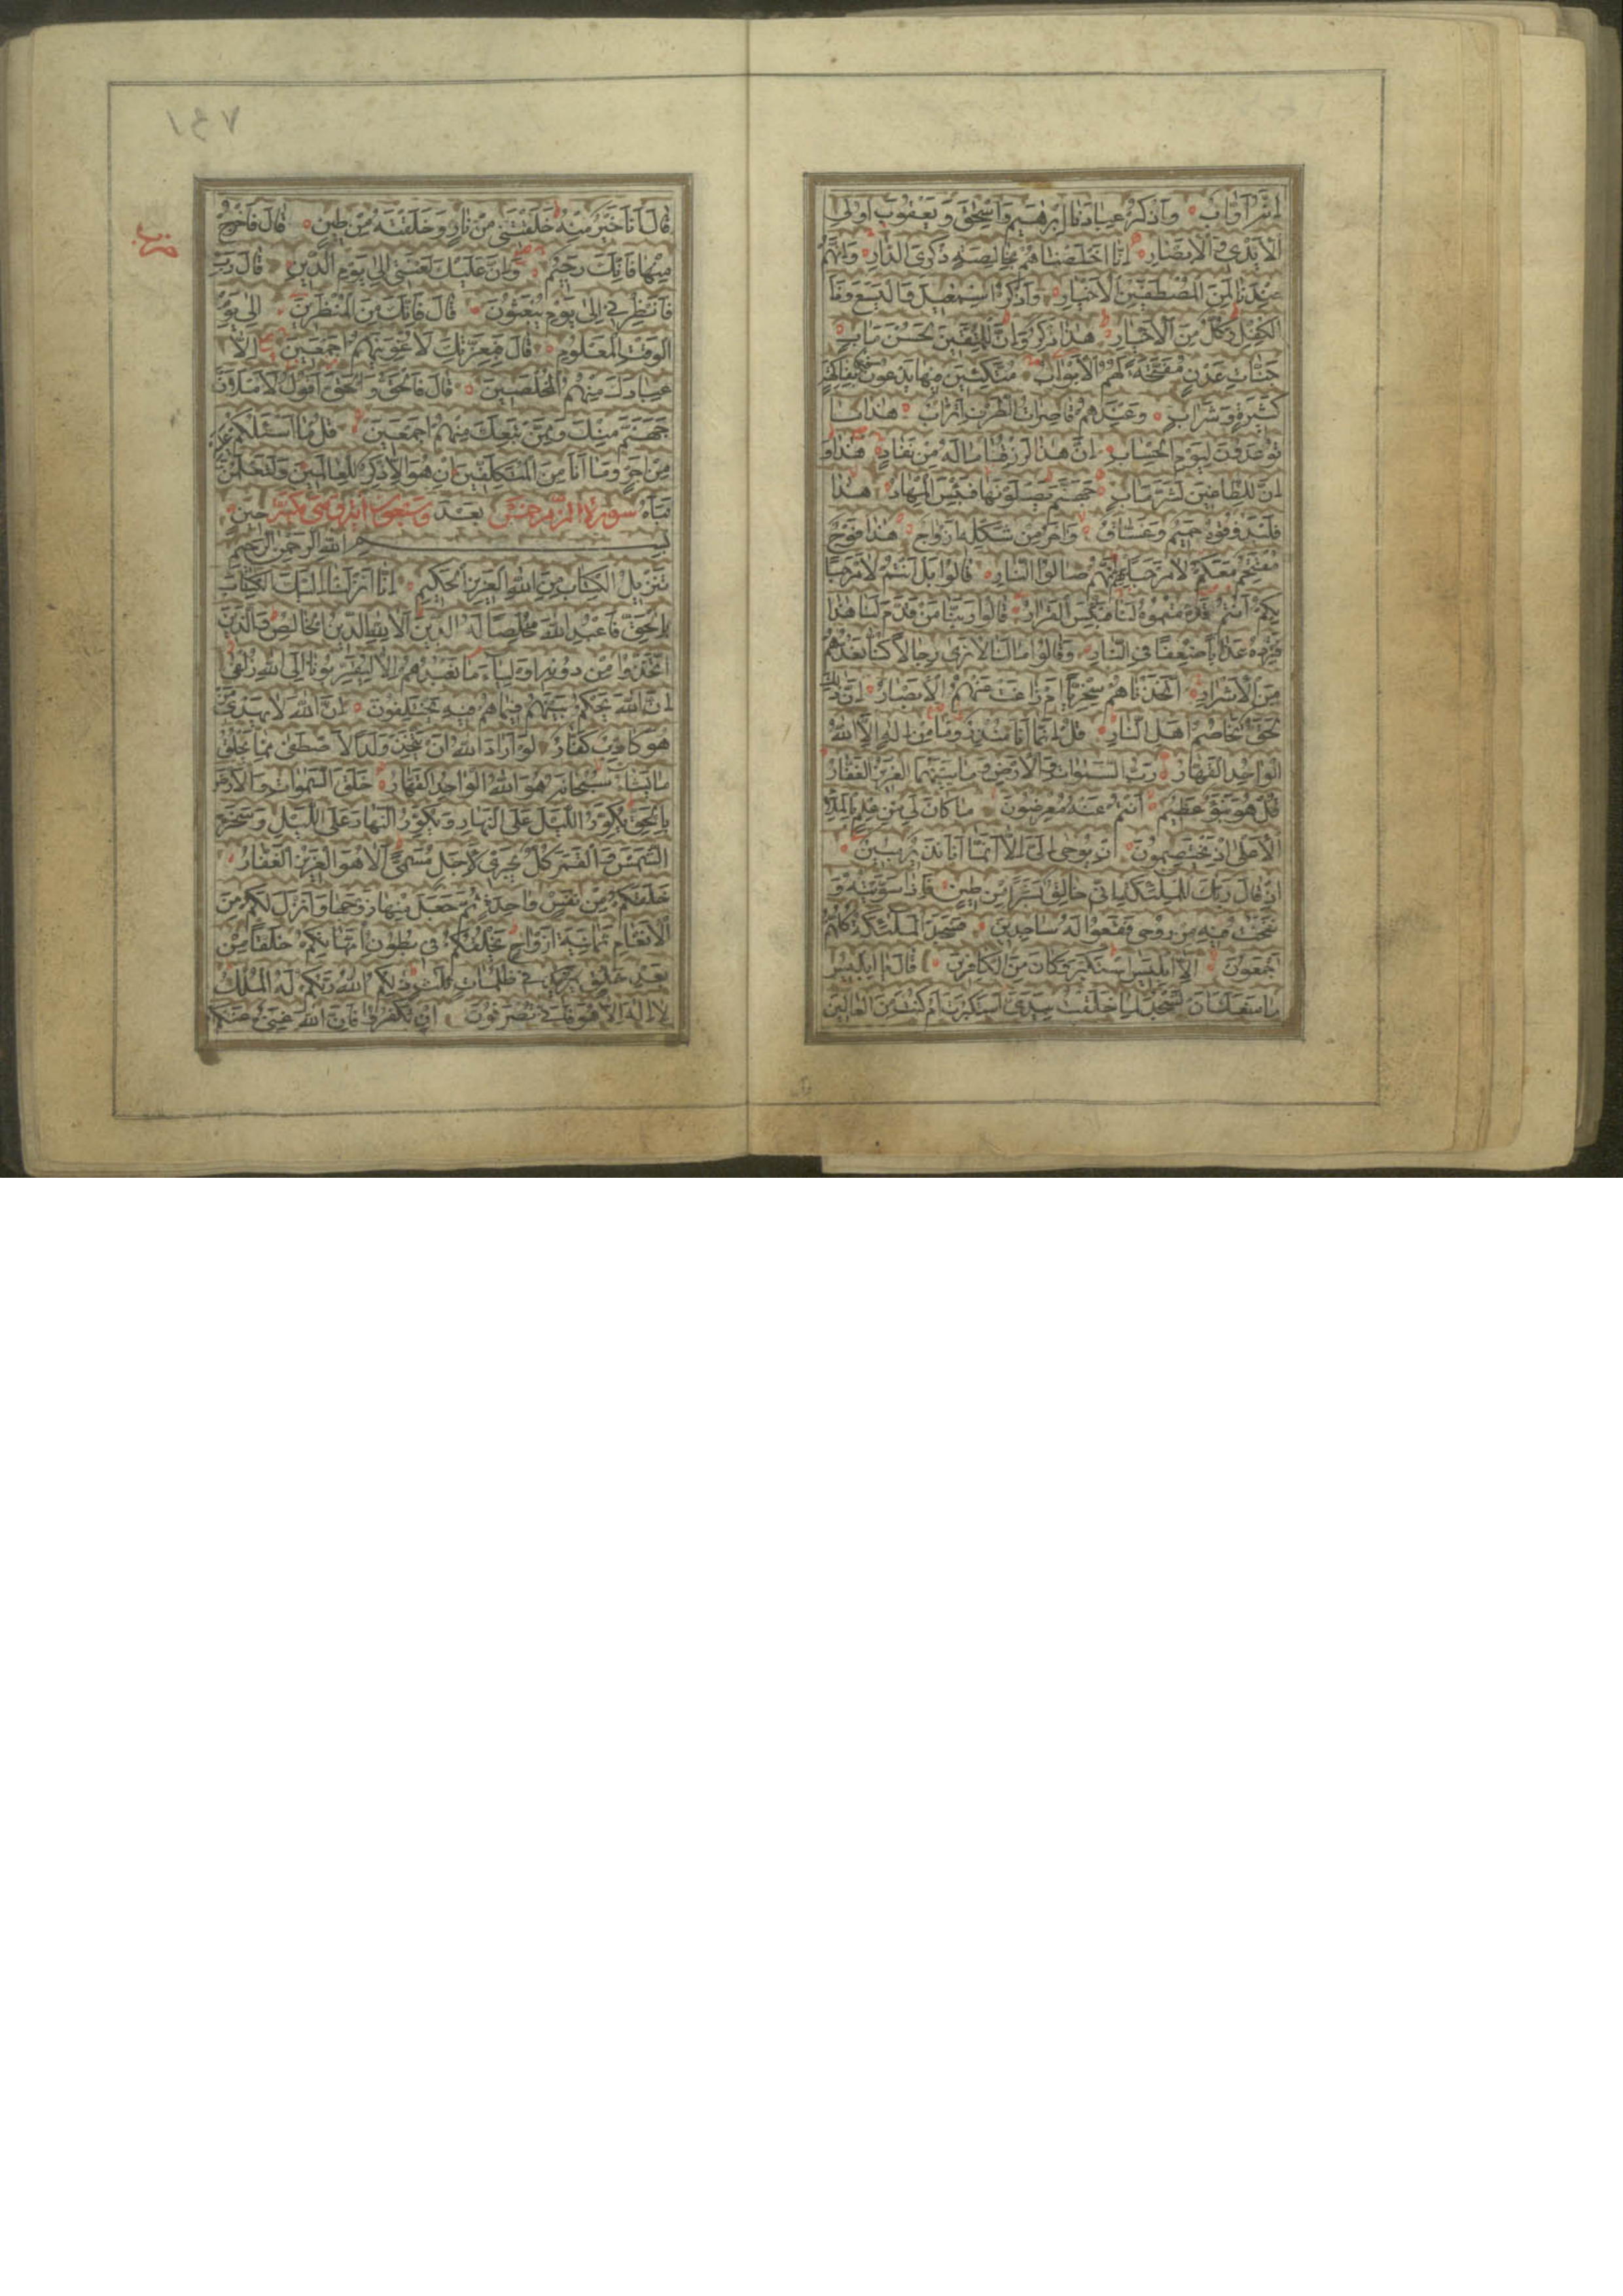 اِنَّهُ اَوَّابٌ وَاذْكُرْ عِبَادَنَا اِبْرٰهِيمَ وَاِسْحٰقَ وَيَعْقُوبَ اُولِى
الْاَيْدِى وَالْاَبْصَارِ اِنَّا اَخْلَصْنَاهُمْ بِخَالِصَةٍ ذِكْرَى الدَّارِ وَاِنَّهُمْ
عِنْدَنَا لَمِنَ الْمُصْطَفَيْنَ الْاَخْيَارِ وَاذْكُرْ اِسْمٰعِيلَ وَالْيَسَعَ وَذَا
الْكِفْلِ وَكُلٌّ مِنَ الْاَخْيَارِ هٰذَا ذِكْرٌ وَاِنَّ لِلْمُتَّقِينَ لَحُسْنَ مَاٰبٍ
جَنَّاتِ عَدْنٍ مُفَتَّحَةً لَهُمُ الْاَبْوَابُ مُتَّكِئِينَ فِيهَا يَدْعُونَ فِيهَا بِفَاكِهَةٍ
كَثِيرَةٍ وَشَرَابٍ وَعِنْدَهُمْ قَاصِرَاتُ الطَّرْفِ اَتْرَابٌ هٰذَا مَا
تُوعَدُونَ لِيَوْمِ الْحِسَابِ اِنَّ هٰذَا لَرِزْقُنَا مَا لَهُ مِنْ نَفَادٍ هٰذَا وَ
اِنَّ لِلطَّاغِينَ لَشَرَّ مَاٰبٍ جَهَنَّمَ يَصْلَوْنَهَا فَبِئْسَ الْمِهَادُ هٰذَا
فَلْيَذُوقُوهُ حَمِيمٌ وَغَسَّاقٌ وَاٰخَرُ مِنْ شَكْلِهِ اَزْوَاجٌ هٰذَا فَوْجٌ
مُقْتَحِمٌ مَعَكُمْ لَا مَرْحَبًا بِهِمْ اِنَّهُمْ صَالُوا النَّارِ قَالُوا بَلْ اَنْتُمْ لَا مَرْحَبًا
بِكُمْ اَنْتُمْ قَدَّمْتُمُوهُ لَنَا فَبِئْسَ الْقَرَارُ قَالُوا رَبَّنَا مَنْ قَدَّمَ لَنَا هٰذَا
فَزِدْهُ عَذَابًا ضِعْفًا فِى النَّارِ وَقَالُوا مَا لَنَا لَا نَرٰى رِجَالًا كُنَّا نَعُدُّهُمْ
مِنَ الْاَشْرَارِ اَتَّخَذْنَاهُمْ سِخْرِيًّا اَمْ زَاغَتْ عَنْهُمُ الْاَبْصَارُ اِنَّ ذٰلِكَ
لَحَقٌّ تَخَاصُمُ اَهْلِ النَّارِ قُلْ اِنَّمَا اَنَا مُنْذِرٌ وَمَا مِنْ اِلٰهٍ اِلَّا اللّٰهُ
الْوَاحِدُ الْقَهَّارُ رَبُّ السَّمٰوَاتِ وَالْاَرْضِ وَمَا بَيْنَهُمَا الْعَزِيزُ الْغَفَّارُ
قُلْ هُوَ نَبَؤٌ عَظِيمٌ اَنْتُمْ عَنْهُ مُعْرِضُونَ مَا كَانَ لِىَ مِنْ عِلْمٍ بِالْمَلَاِ
الْاَعْلٰى اِذْ يَخْتَصِمُونَ اِنْ يُوحٰى اِلَىَّ اِلَّا اَنَّمَا اَنَا نَذِيرٌ مُبِينٌ
اِذْ قَالَ رَبُّكَ لِلْمَلٰئِكَةِ اِنِّى خَالِقٌ بَشَرًا مِنْ طِينٍ فَاِذَا سَوَّيْتُهُ وَ
نَفَخْتُ فِيهِ مِنْ رُوحِى فَقَعُوا لَهُ سَاجِدِينَ فَسَجَدَ الْمَلٰئِكَةُ كُلُّهُمْ
اَجْمَعُونَ اِلَّا اِبْلِيسَ اسْتَكْبَرَ وَكَانَ مِنَ الْكَافِرِينَ قَالَ يَا اِبْلِيسُ
مَا مَنَعَكَ اَنْ تَسْجُدَ لِمَا خَلَقْتُ بِيَدَىَّ اَسْتَكْبَرْتَ اَمْ كُنْتَ مِنَ الْعَالِينَ
قَالَ اَنَا خَيْرٌ مِنْهُ خَلَقْتَنِى مِنْ نَارٍ وَخَلَقْتَهُ مِنْ طِينٍ قَالَ فَاخْرُجْ
مِنْهَا فَاِنَّكَ رَجِيمٌ وَاِنَّ عَلَيْكَ لَعْنَتِى اِلٰى يَوْمِ الدِّينِ قَالَ رَبِّ
فَاَنْظِرْنِى اِلٰى يَوْمِ يُبْعَثُونَ قَالَ فَاِنَّكَ مِنَ الْمُنْظَرِينَ اِلٰى يَوْمِ
الْوَقْتِ الْمَعْلُومِ قَالَ فَبِعِزَّتِكَ لَاُغْوِيَنَّهُمْ اَجْمَعِينَ اِلَّا
عِبَادَكَ مِنْهُمُ الْمُخْلَصِينَ قَالَ فَالْحَقُّ وَالْحَقَّ اَقُولُ لَاَمْلَاَنَّ
جَهَنَّمَ مِنْكَ وَمِمَّنْ تَبِعَكَ مِنْهُمْ اَجْمَعِينَ قُلْ مَا اَسْئَلُكُمْ عَلَيْهِ
مِنْ اَجْرٍ وَمَا اَنَا مِنَ الْمُتَكَلِّفِينَ اِنْ هُوَ اِلَّا ذِكْرٌ لِلْعَالَمِينَ وَلَتَعْلَمُنَّ
نَبَاَهُ سورة الزمر خمس بَعْدَ وسبعون اية وهى مكية حِينٍ
بِسْمِ اللّٰهِ الرَّحْمٰنِ الرَّحِيمِ
تَنْزِيلُ الْكِتَابِ مِنَ اللّٰهِ الْعَزِيزِ الْحَكِيمِ اِنَّا اَنْزَلْنَا اِلَيْكَ الْكِتَابَ
بِالْحَقِّ فَاعْبُدِ اللّٰهَ مُخْلِصًا لَهُ الدِّينَ اَلَا لِلّٰهِ الدِّينُ الْخَالِصُ وَالَّذِينَ
اتَّخَذُوا مِنْ دُونِهِ اَوْلِيَاءَ مَا نَعْبُدُهُمْ اِلَّا لِيُقَرِّبُونَا اِلَى اللّٰهِ زُلْفٰى
اِنَّ اللّٰهَ يَحْكُمُ بَيْنَهُمْ فِيمَا هُمْ فِيهِ يَخْتَلِفُونَ اِنَّ اللّٰهَ لَا يَهْدِى مَنْ
هُوَ كَاذِبٌ كَفَّارٌ لَوْ اَرَادَ اللّٰهُ اَنْ يَتَّخِذَ وَلَدًا لَاصْطَفٰى مِمَّا يَخْلُقُ
مَا يَشَاءُ سُبْحَانَهُ هُوَ اللّٰهُ الْوَاحِدُ الْقَهَّارُ خَلَقَ السَّمٰوَاتِ وَالْاَرْضَ
بِالْحَقِّ يُكَوِّرُ اللَّيْلَ عَلَى النَّهَارِ وَيُكَوِّرُ النَّهَارَ عَلَى اللَّيْلِ وَسَخَّرَ
الشَّمْسَ وَالْقَمَرَ كُلٌّ يَجْرِى لِاَجَلٍ مُسَمًّى اَلَا هُوَ الْعَزِيزُ الْغَفَّارُ
خَلَقَكُمْ مِنْ نَفْسٍ وَاحِدَةٍ ثُمَّ جَعَلَ مِنْهَا زَوْجَهَا وَاَنْزَلَ لَكُمْ مِنَ
الْاَنْعَامِ ثَمَانِيَةَ اَزْوَاجٍ يَخْلُقُكُمْ فِى بُطُونِ اُمَّهَاتِكُمْ خَلْقًا مِنْ
بَعْدِ خَلْقٍ فِى ظُلُمَاتٍ ثَلَاثٍ ذٰلِكُمُ اللّٰهُ رَبُّكُمْ لَهُ الْمُلْكُ
لَا اِلٰهَ اِلَّا هُوَ فَاَنّٰى تُصْرَفُونَ اِنْ تَكْفُرُوا فَاِنَّ اللّٰهَ غَنِىٌّ عَنْكُمْ
حزب